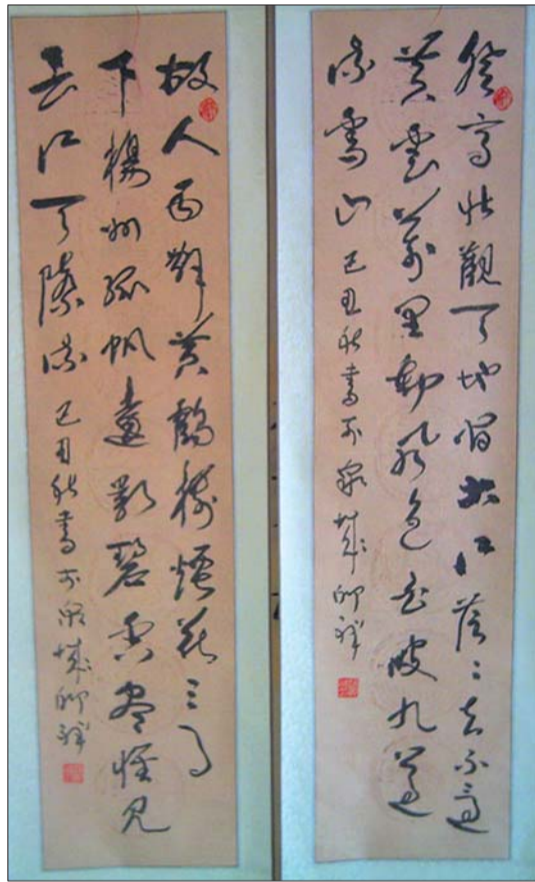 登高壯觀天地間大江茫〻去不還
黃雲萬里動風色白波九道
流雪山 己丑秋書於泉城
故人西辭黃鶴樓煙花三月
下楊州孤帆遠影碧空盡惟見
長江天際流 己丑秋書於泉城